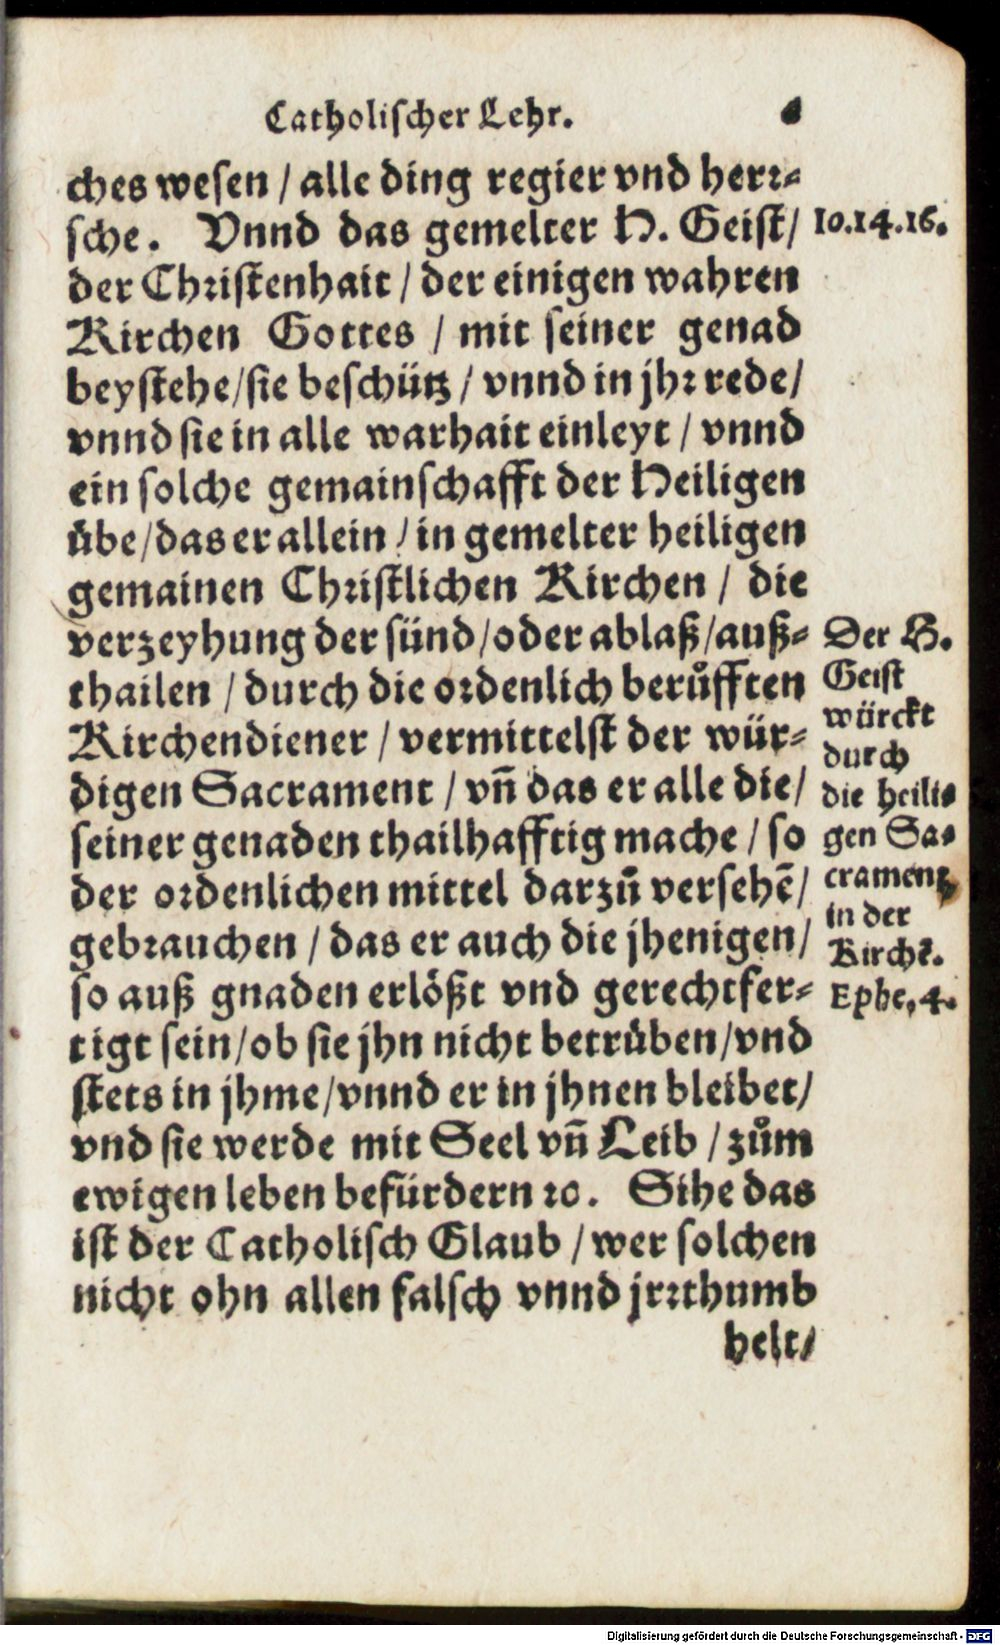 Catholischer Lehr.
ches wesen / alle ding regier vnd herr-
sche. Vnnd das gemelter H. Geist /
10.14.16.
der Christenhait / der einigen wahren
Kirchen Gottes / mit seiner genad
beystehe / sie beschütz / vnnd in jhr rede /
vnnd sie in alle warhait einleyt / vnnd
ein solche gemainschafft der Heiligen
übe / das er allein / in gemelter heiligen
gemainen Christlichen Kirchen / die
verzeyhung der sünd / oder ablaß / auß-
thailen / durch die ordenlich berůfften
Kirchendiener / vermittelst der wür-
digen Sacrament / vñ das er alle die /
seiner genaden thailhafftig mache / so
der ordenlichen mittel darzů versehē /
gebrauchen / das er auch die jhenigen /
so auß gnaden erlößt vnd gerechtfer-
tigt sein / ob sie jhn nicht betrüben / vnd
stets in jhme / vnnd er in jhnen bleibet /
vnd sie werde mit Seel vñ Leib / zům
ewigen leben befürdern ꝛc. Sihe das
ist der Catholisch Glaub / wer solchen
nicht ohn allen falsch vnnd jrrthumb
helt /
Der H.
Geist
würckt
durch
die heili-
gen Sa-
crament
in der
Kirchē.
Ephe. 4.
Digitalisierung gefördert durch die Deutsche Forschungsgemeinschaft - DFG